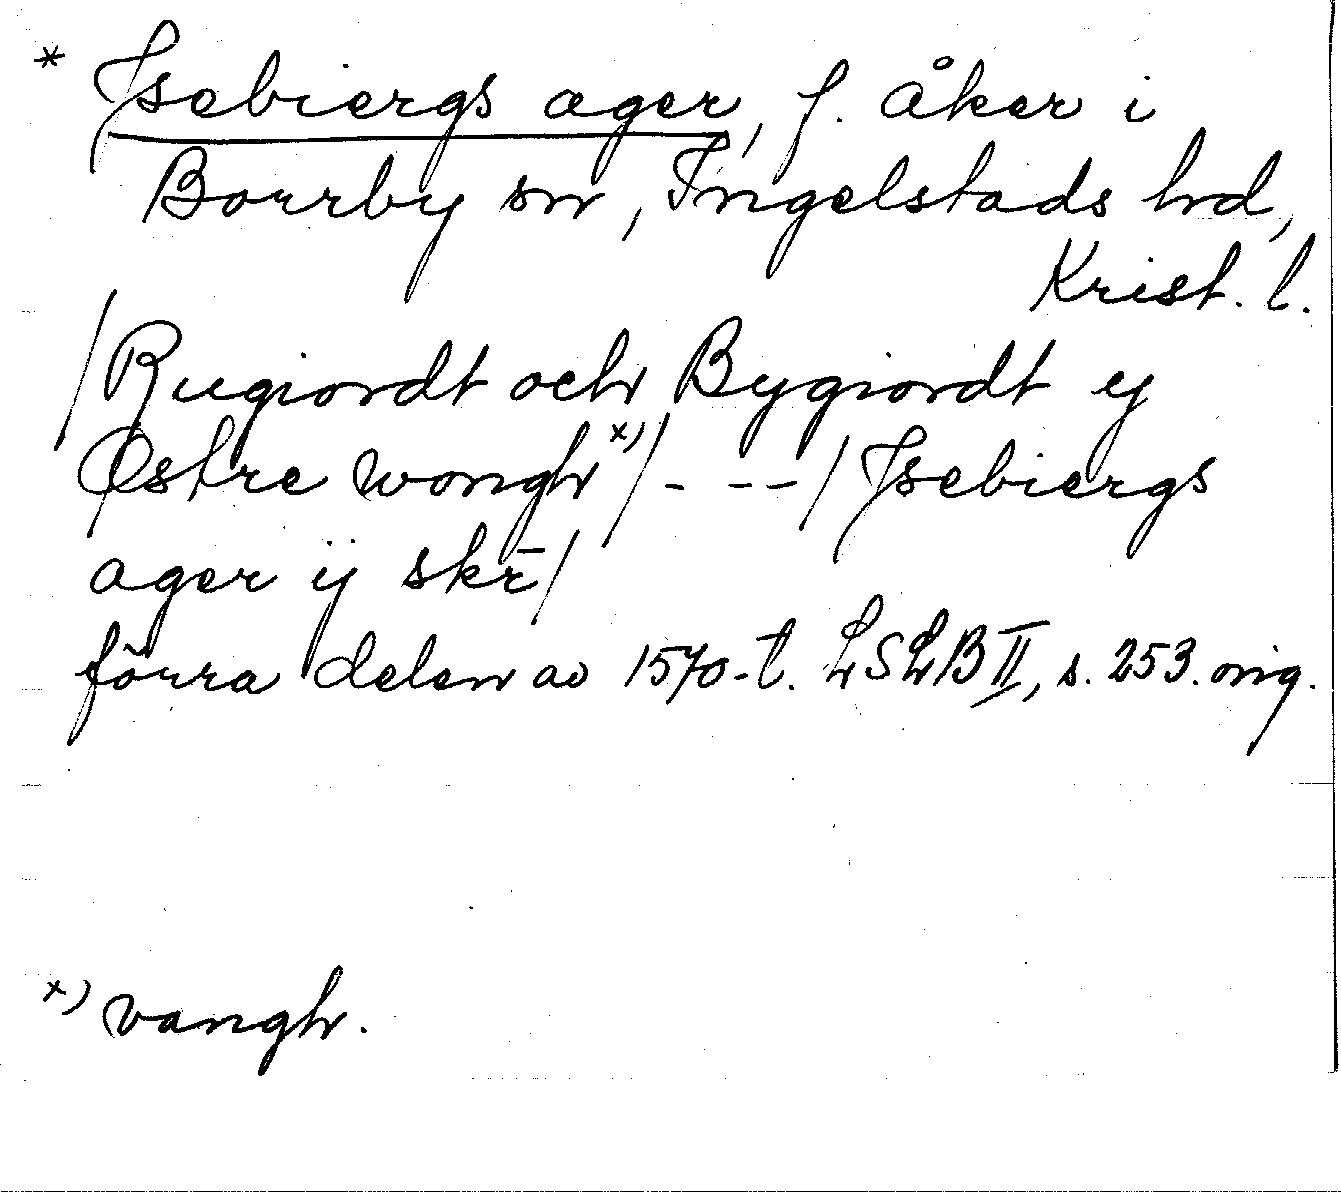 * Jsebiergs ager, f. åker i
Borrby sn, Ingelstads hd,
Krist. l.
/Rugiordt och Bygiordt ÿ
Østre wongh x)/- --/Jsebiergs
ager ÿ skr̄/
förra delen av 1570-t. LSLB II, s. 253. orig.
x) vangh.